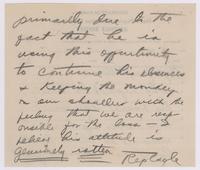 primarily due to the
fact that he is
using this opportunity
to continue his absences
& keeping the money
on our shoulders with the
feeling that we are resp
onsible for the loss — I
believe his attitude is
genuinely rotten